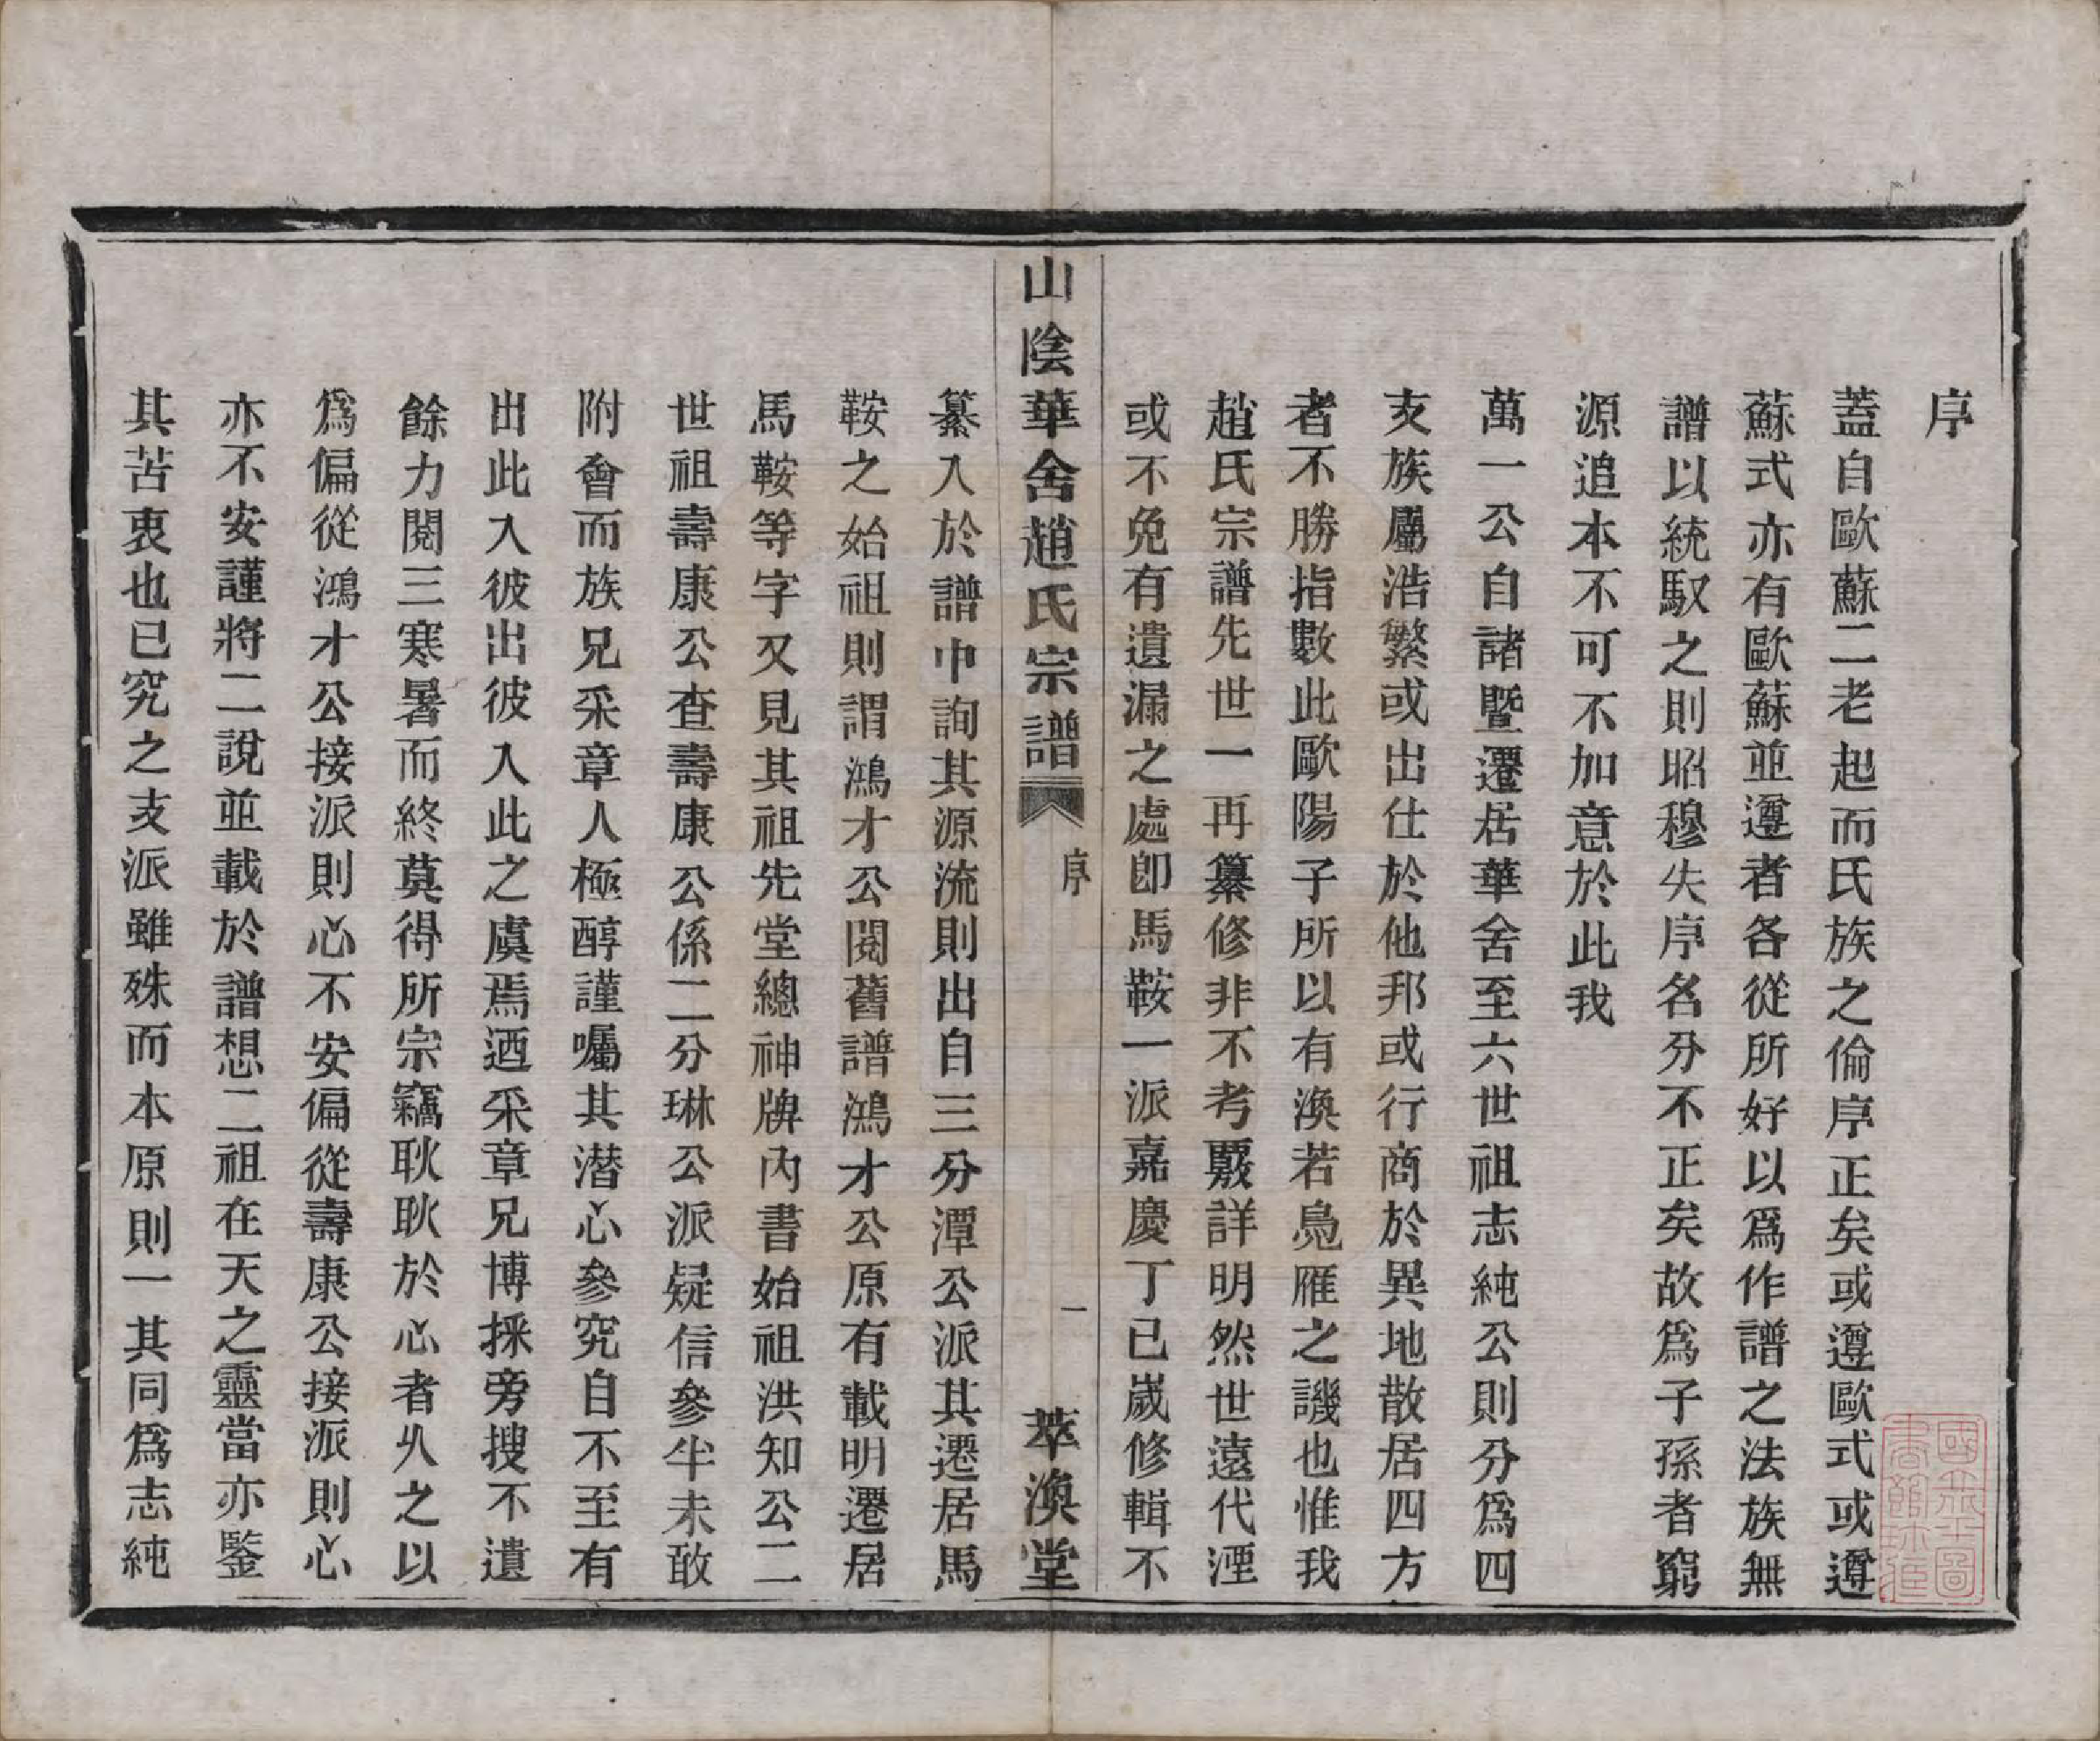 序
蓋自歐蘇二老起而氏族之倫序正矣或遵歐式或遵
蘇式亦有歐蘇並遵者各從所好以爲作譜之法族無
譜以統馭之則昭穆失序名分不正矣故爲子孫者窮
源追本不可不加意於此我
萬一公自諸暨遷居華舍至六世祖志純公則分爲四
支族屬浩繁或出仕於他邦或行商於異地散居四方
者不勝指數此歐陽子所以有渙若鳧雁之譏也惟我
趙氏宗譜先世一再纂修非不考覈詳明然世遠代湮
或不免有遺漏之處卽馬鞍一派嘉慶丁巳嵗修輯不
山陰華舍趙氏宗譜 序 一 萃渙堂
纂入於譜中詢其源流則出自三分潭公派其遷居馬
鞍之始祖則謂鴻才公閱舊譜鴻才公原有載明遷居
馬鞍等字又見其祖先堂總神牌內書始祖洪知公二
世祖壽康公查壽康公係二分琳公派疑信參半未敢
附會而族兄采章人極醇謹囑其潛心參究自不至有
出此入彼出彼入此之虞焉迺采章兄博採旁搜不遺
餘力閱三寒暑而終莫得所宗竊耿耿於心者久之以
爲偏從鴻才公接派則心不安偏從壽康公接派則心
亦不安謹將二說並載於譜想二祖在天之靈當亦鑒
其苦衷也已究之支派雖殊而本原則一其同爲志純
國立北平圖
書館珍藏